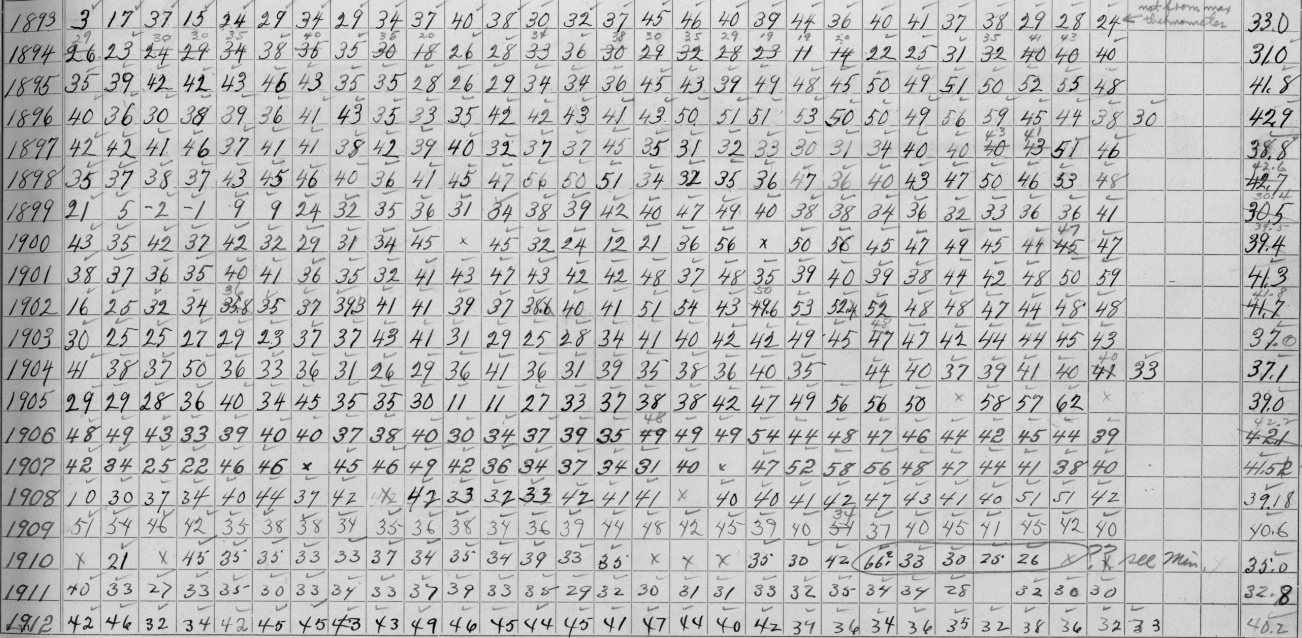 not from max
1893 3 17 37 15 24 29 34 29 34 37 40 38 30 32 37 45 46 40 39 44 36 40 41 37 38 29 28 24 thermometer 33.0
29 30 30 35 40 35 20 34 38 30 35 29 19 19 20 35 41 43
1894 26 23 24 29 34 38 35 35 30 18 26 28 33 36 30 29 32 28 23 11 14 22 25 31 32 40 40 40 31.0
1895 35 39 42 42 43 46 43 35 35 28 26 29 34 34 36 45 43 39 49 48 45 50 49 51 50 52 55 48 41.8
1896 40 36 30 38 39 36 41 43 35 33 35 42 42 43 41 43 50 51 51 53 50 50 49 56 59 45 44 38 30 42.9
43 41
1897 42 42 41 46 37 41 41 38 42 39 40 32 37 37 45 35 31 32 33 30 31 34 40 40 40 43 51 46 38.8
42.6
1898 35 37 38 37 43 45 46 40 36 41 45 47 56 50 51 34 32 35 36 47 36 40 43 47 50 46 53 48 42.7
30.4
1899 21 5 -2 -1 9 9 24 32 35 36 31 34 38 39 42 40 47 49 40 38 38 34 36 32 33 36 36 41 30.5
47 39.5
1900 43 35 42 37 42 32 29 31 34 45 x 45 32 24 12 21 36 56 x 50 56 45 47 49 45 44 45 47 39.4
1901 38 37 36 35 40 41 36 35 32 41 43 47 43 42 42 48 37 48 35 39 40 39 38 44 42 48 50 59 41.3
36 50 41.8
1902 16 25 32 34 35.8 35 37 39.3 41 41 39 37 38.6 40 41 51 54 43 49.6 53 52.4 52 48 48 47 44 48 48 41.7
1903 30 25 25 27 29 23 37 37 43 41 31 29 25 28 34 41 40 42 42 49 45 47 47 42 44 44 45 43 37.0
48 40
1904 41 38 37 50 36 33 36 31 26 29 36 41 36 31 39 35 38 36 40 35 44 40 37 39 41 40 41 33 37.1
1905 29 29 28 36 40 34 45 35 35 30 11 11 27 33 37 38 38 42 47 49 56 56 50 x 58 57 62 x 39.0
48 42.2
1906 48 49 43 33 39 40 40 37 38 40 30 34 37 39 35 49 49 49 54 44 48 47 46 44 42 45 44 39 42.1
1907 42 34 25 22 46 46 x 45 46 49 42 36 34 37 34 31 40 x 47 52 58 56 48 47 44 41 38 40
1908 10 30 37 34 40 44 37 42 x 47 33 32 33 42 41 41 x 40 40 41 42 47 43 41 40 51 51 42 39.18
34
1909 51 54 46 42 35 38 38 34 35 36 38 34 36 39 44 48 42 45 39 40 54 37 40 45 41 45 42 40 40.6
1910 x 21 x 45 35 35 33 33 37 34 35 34 39 33 35 x x x 35 30 42 66? 33 30 25 26 x ?? x see Min. 35.0
1911 40 33 27 33 35 30 33 34 33 37 39 33 35 29 32 30 31 31 33 32 35 34 34 28 32 30 30 32.8
1912 42 46 32 34 42 45 45 43 43 49 46 45 44 45 41 47 44 40 42 39 36 34 36 35 32 38 36 32 33 40.2